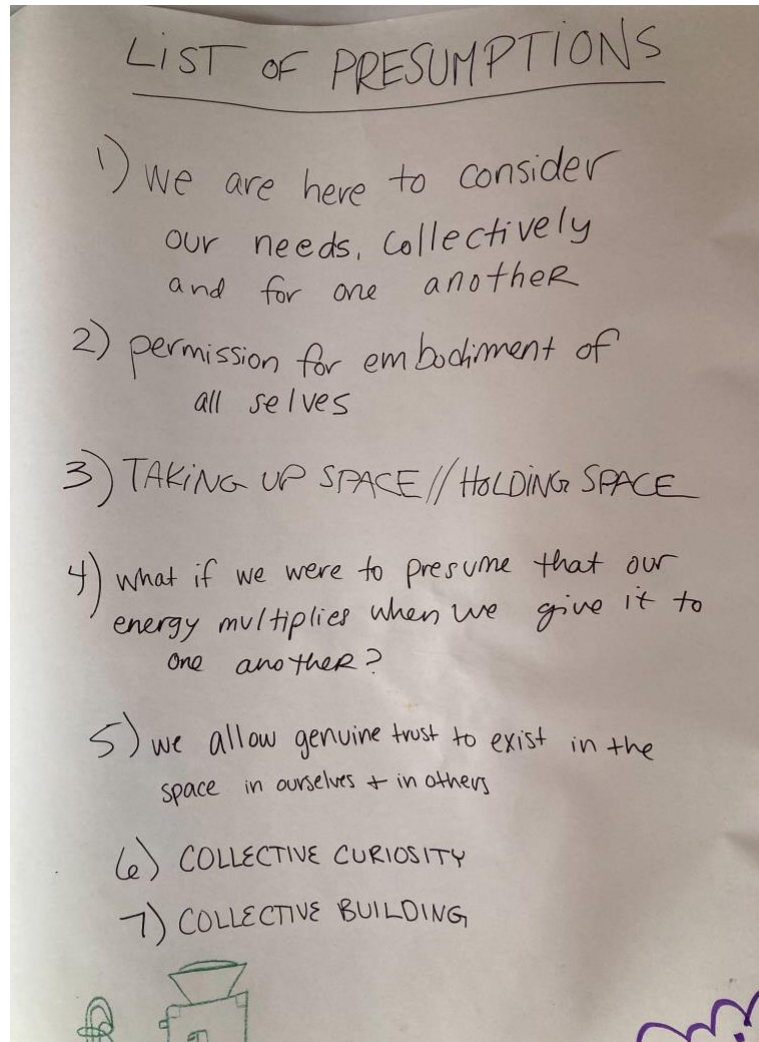 LIST OF PRESUMPTIONS
1) we are here to consider
our needs, collectively
and for one another
2) permission for embodiment of
all selves
3) TAKING UP SPACE // HOLDING SPACE
4) what if we were to presume that our
energy multiplies when we give it to
one another?
5) we allow genuine trust to exist in the
space in ourselves + in others
6) COLLECTIVE CURIOSITY
7) COLLECTIVE BUILDING